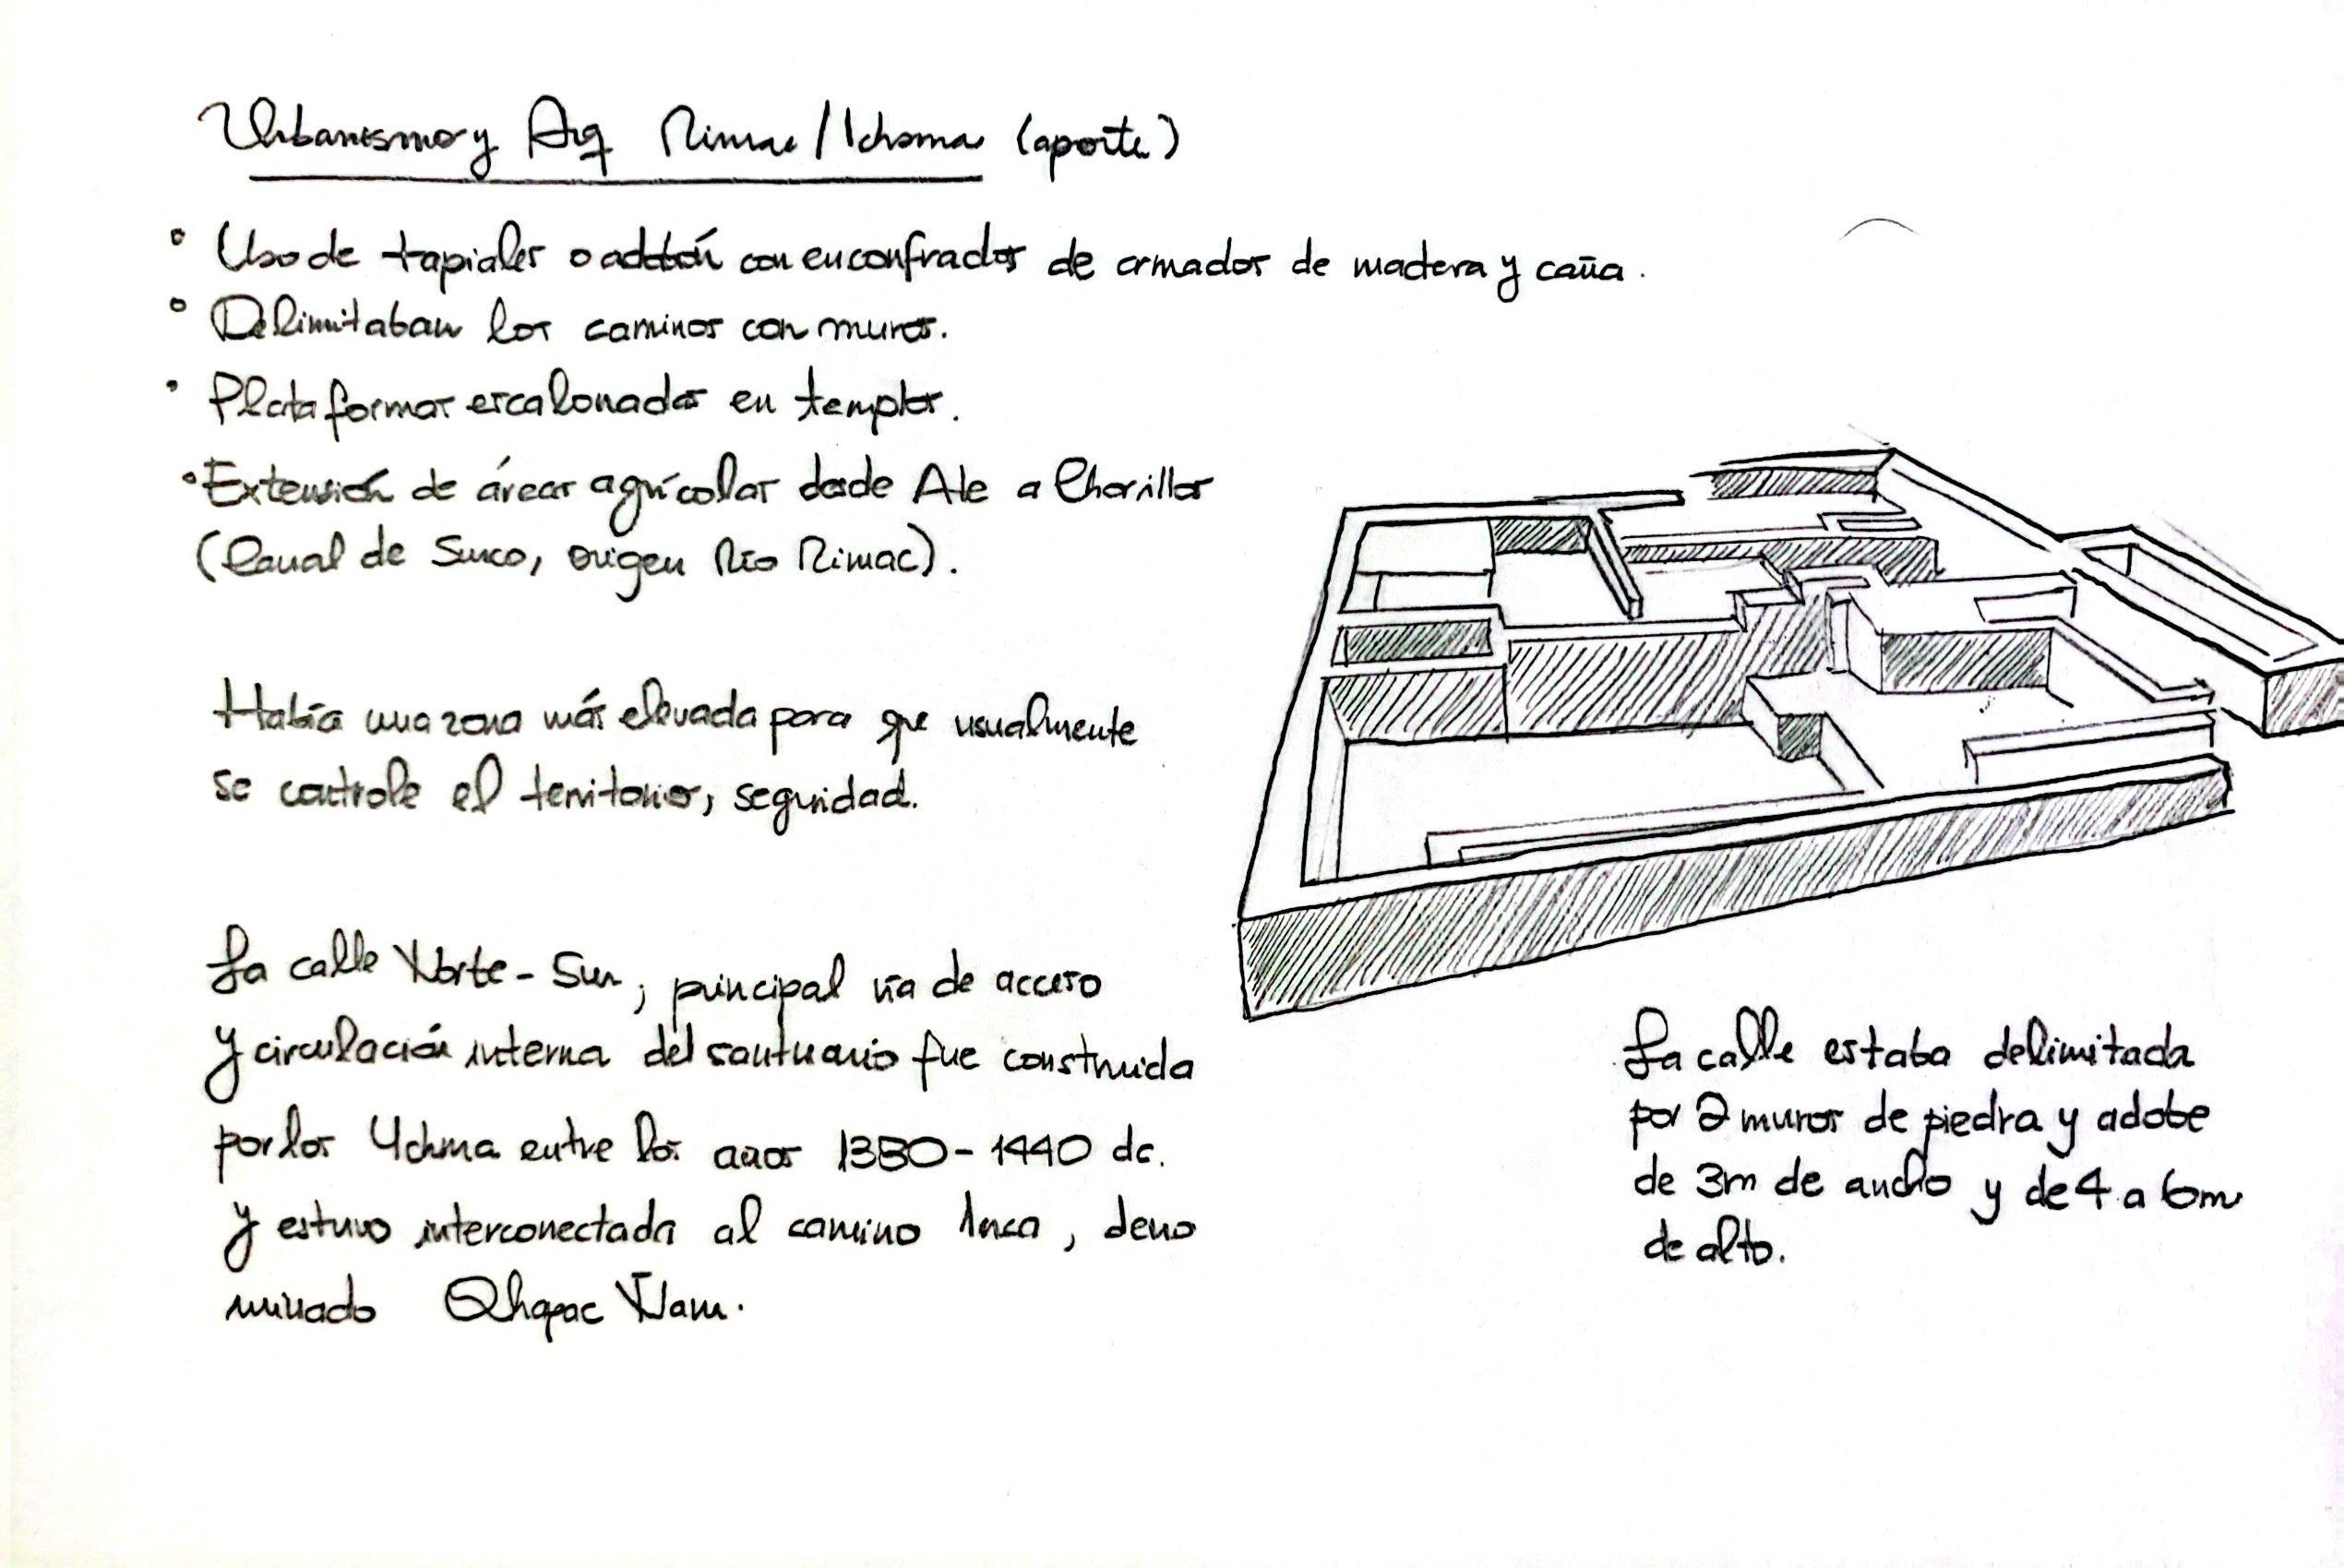 Urbanismo y Arq Rimac / Ichsma (aporte)
° Uso de tapiales o adobón con enconfrados de armador de madera y caña.
° Delimitaban los caminos con muros.
° Plataformas escalonadas en templos.
° Extensión de áreas agrícolas desde Ate a Chorillos
(Canal de Surco, origen Río Rimac).
Había una zona más elevada para que usualmente
se controle el territorio, seguridad.
La calle Norte - Sur, principal vía de acceso
y circulación interna del santuario fue construida
por los Ychma entre los años 1380 - 1440 dc.
y estuvo interconectada al camino Inca, deno
minado Qhapac Ñam.
La calle estaba delimitada
por 2 muros de piedra y adobe
de 3m de ancho y de 4 a 6m
de alto.